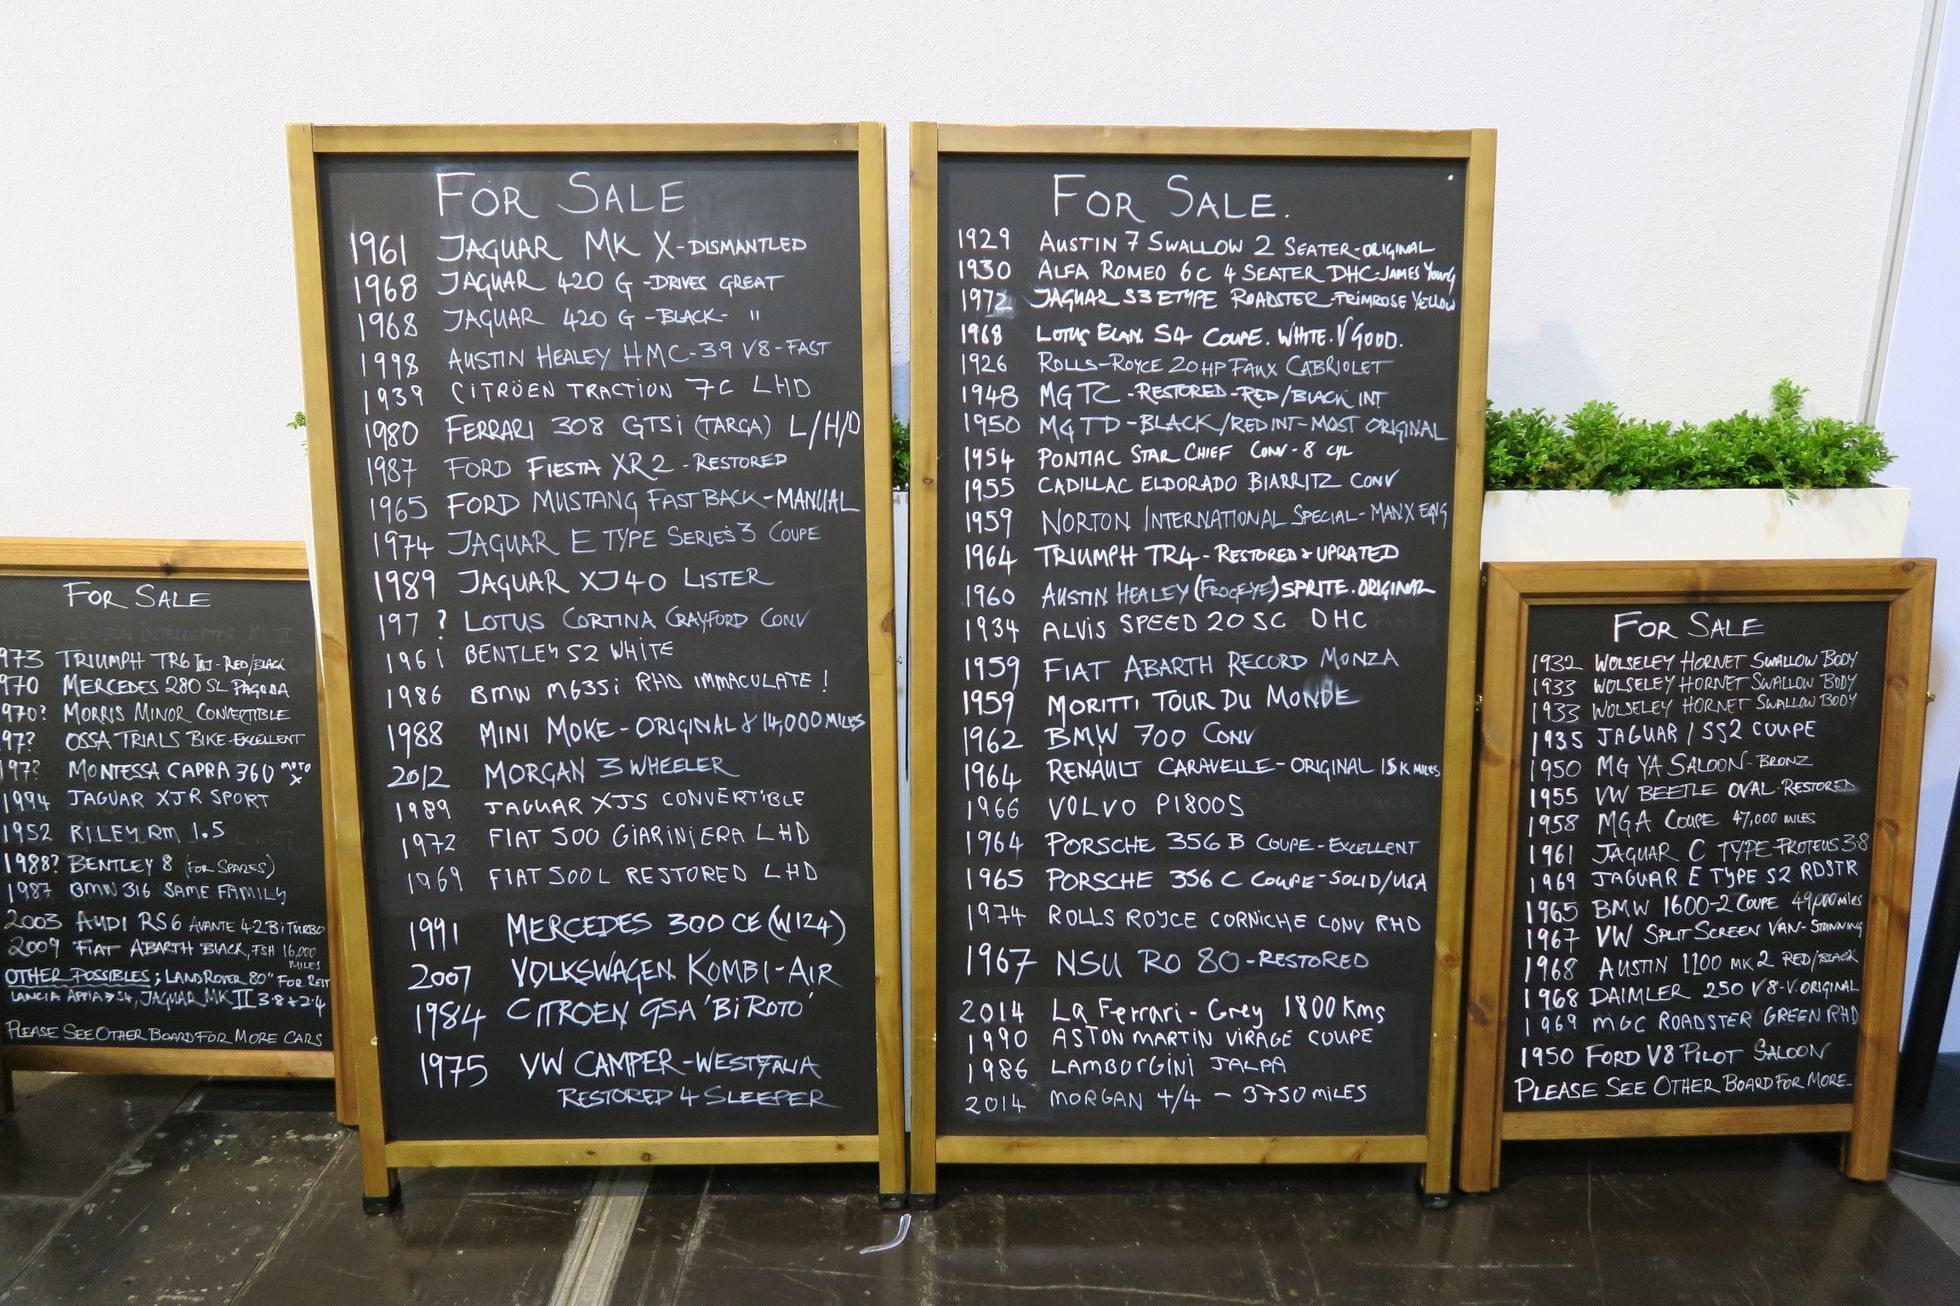 FOR SALE
973 TRIUMPH TR6 INJ - RED/BLACK
970 MERCEDES 280 SL PAGODA
970? MORRIS MINOR CONVERTIBLE
197? OSSA TRIALS BIKE - EXCELLENT
197? MONTESSA CAPRA 360 MOTO X
1994 JAGUAR XJR SPORT
1952 RILEY RM 1.5
1988? BENTLEY 8 (FOR SPARES)
1987 BMW 316 SAME FAMILY
2003 AUDI RS6 AVANTE 4.2 BiTURBO
2009 FIAT ABARTH BLACK, FSH 16,000 MILES
OTHER POSSIBLES; LANDROVER 80" FOR REST
LANCIA APPIA, JAGUAR MK II 3.8 + 2.4
PLEASE SEE OTHER BOARD FOR MORE CARS
FOR SALE
1961 JAGUAR MK X - DISMANTLED
1968 JAGUAR 420 G - DRIVES GREAT
1968 JAGUAR 420 G - BLACK - "
1998 AUSTIN HEALEY HMC - 3.9 V8 - FAST
1939 CITRÖEN TRACTION 7C LHD
1980 FERRARI 308 GTSi (TARGA) L/H/D
1987 FORD FIESTA XR2 - RESTORED
1965 FORD MUSTANG FASTBACK - MANUAL
1974 JAGUAR E TYPE SERIES 3 COUPE
1989 JAGUAR XJ40 LISTER
197? LOTUS CORTINA CRAYFORD CONV
1961 BENTLEY S2 WHITE
1986 BMW M635i RHD IMMACULATE!
1988 MINI MOKE - ORIGINAL & 14,000 MILES
2012 MORGAN 3 WHEELER
1989 JAGUAR XJS CONVERTIBLE
1972 FIAT 500 GIARINIERA LHD
1969 FIAT 500L RESTORED LHD
1991 MERCEDES 300 CE (W124)
2007 VOLKSWAGEN KOMBI - AIR
1984 CITROEN GSA 'BiROTO'
1975 VW CAMPER - WESTFALIA
RESTORED 4 SLEEPER
FOR SALE.
1929 AUSTIN 7 SWALLOW 2 SEATER - ORIGINAL
1930 ALFA ROMEO 6C 4 SEATER DHC - JAMES YOUNG
1972 JAGUAR S3 ETYPE ROADSTER - PRIMROSE YELLOW
1968 LOTUS ELAN. S4 COUPE. WHITE. V GOOD.
1926 ROLLS-ROYCE 20HP FAUX CABRIOLET
1948 MG TC - RESTORED - RED/BLACK INT
1950 MG TD - BLACK/RED INT - MOST ORIGINAL
1954 PONTIAC STAR CHIEF CONV - 8 CYL
1955 CADILLAC ELDORADO BIARRITZ CONV
1959 NORTON INTERNATIONAL SPECIAL - MANX ENG
1964 TRIUMPH TR4 - RESTORED & UPRATED
1960 AUSTIN HEALEY (FROGEYE) SPRITE. ORIGINAL
1934 ALVIS SPEED 20 SC DHC
1959 FIAT ABARTH RECORD MONZA
1959 MORITTI TOUR DU MONDE
1962 BMW 700 CONV
1964 RENAULT CARAVELLE - ORIGINAL 15K MILES
1966 VOLVO P1800S
1964 PORSCHE 356 B COUPE - EXCELLENT
1965 PORSCHE 356 C COUPE - SOLID/USA
1974 ROLLS ROYCE CORNICHE CONV RHD
1967 NSU RO 80 - RESTORED
2014 La Ferrari - Grey 1800 Kms
1990 ASTON MARTIN VIRAGE COUPE
1986 LAMBORGINI JALPA
2014 MORGAN 4/4 - 3750 MILES
FOR SALE
1932 WOLSELEY HORNET SWALLOW BODY
1933 WOLSELEY HORNET SWALLOW BODY
1933 WOLSELEY HORNET SWALLOW BODY
1935 JAGUAR / SS2 COUPE
1950 MG YA SALOON - BRONZ
1955 VW BEETLE OVAL - RESTORED
1958 MGA COUPE 47,000 MILES
1961 JAGUAR C TYPE - PROTEUS 3.8
1969 JAGUAR E TYPE S2 RDSTR
1965 BMW 1600-2 COUPE 49,000 miles
1967 VW SPLIT SCREEN VAN - STUNNING
1968 AUSTIN 1100 MK 2 RED/BLACK
1968 DAIMLER 250 V8 - V. ORIGINAL
1969 MGC ROADSTER GREEN RHD
1950 FORD V8 PILOT SALOON
PLEASE SEE OTHER BOARD FOR MORE